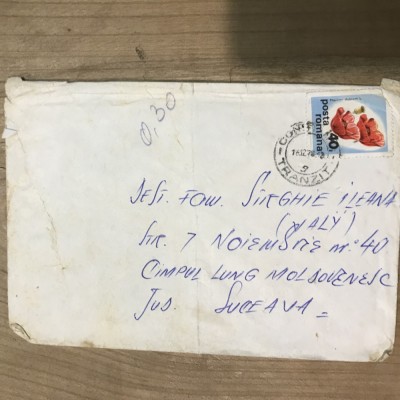 0,30
posta romana 40
TRANZIT
DEST. FAM. SIRGHIE ILEANA
(WALY)
STR. 7 NOIEMBRIE nr. 40
CIMPUL LUNG MOLDOVENESC
JUD. SUCEAVA =